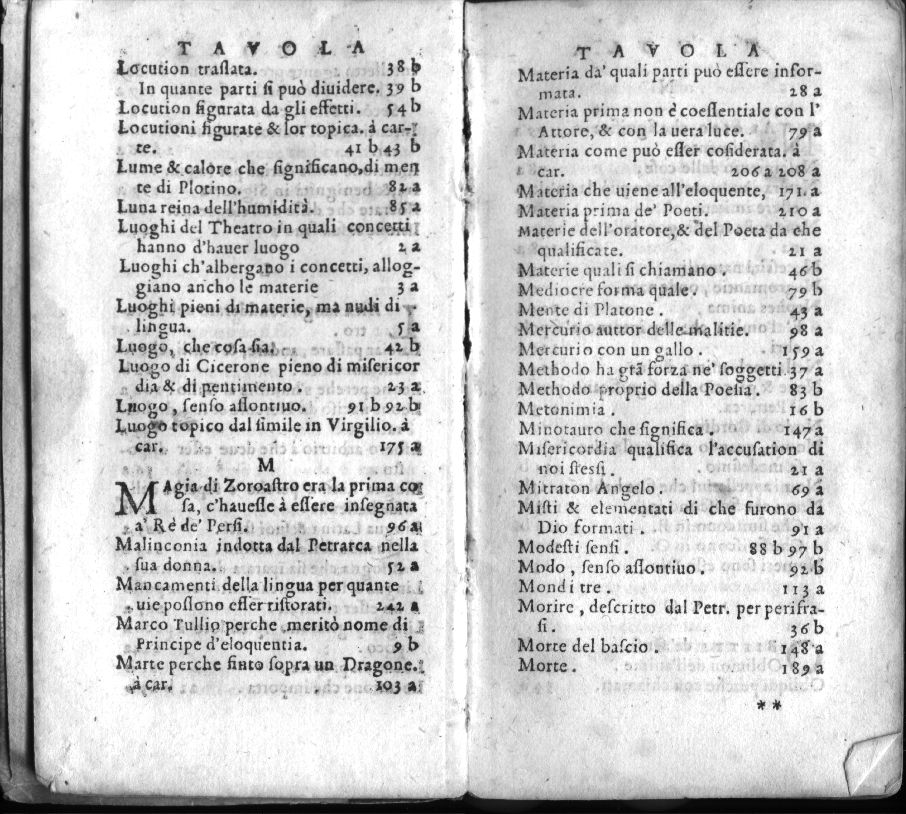 TAVOLA
Locution traſlata. 38 b
In quante parti ſi può diuidere. 39 b
Locution figurata da gli effetti. 54 b
Locutioni figurate & lor topica. à car-
te. 41 b 43 b
Lume & calore che ſignificano, di men
te di Plotino. 82 a
Luna reina dell'humidità. 85 a
Luoghi del Theatro in quali concetti
hanno d'hauer luogo 2 a
Luoghi ch'albergano i concetti, allog-
giano ancho le materie 3 a
Luoghi pieni di materie, ma nudi di
lingua. 5 a
Luogo, che coſa ſia. 42 b
Luogo di Cicerone pieno di miſericor
dia & di pentimento. 23 a
Luogo, ſenſo aſlontiuo. 91 b 92 b
Luogo topico dal ſimile in Virgilio. à
car. 175 a
M
MAgia di Zoroaſtro era la prima co
ſa, c'haueſſe à eſſere inſegnata
a' Rè de' Perſi. 96 a
Malinconia indotta dal Petrarca nella
ſua donna. 52 a
Mancamenti della lingua per quante
uie poſſono eſſer riſtorati. 242 a
Marco Tullio perche meritò nome di
Principe d'eloquentia. 9 b
Marte perche finto ſopra un Dragone.
à car. 103 a
TAVOLA
Materia da' quali parti può eſſere infor-
mata. 28 a
Materia prima non è coeſſentiale con l'
Attore, & con la uera luce. 79 a
Materia come può eſſer coſiderata. à
car. 206 a 208 a
Materia che uiene all'eloquente, 171. a
Materia prima de' Poeti. 210 a
Materie dell'oratore, & del Poeta da che
qualificate. 21 a
Materie quali ſi chiamano. 46 b
Mediocre forma quale. 79 b
Mente di Platone. 43 a
Mercurio auttor delle malitie. 98 a
Mercurio con un gallo. 159 a
Methodo ha grã forza ne' ſoggetti. 37 a
Methodo proprio della Poeſia. 83 b
Metonimia. 16 b
Minotauro che ſignifica. 147 a
Miſericordia qualifica l'accuſation di
noi ſteſſi. 21 a
Mitraton Angelo. 69 a
Miſti & elementati di che furono da
Dio formati. 91 a
Modeſti ſenſi. 88 b 97 b
Modo, ſenſo aſlontiuo. 92 b
Mondi tre. 113 a
Morire, deſcritto dal Petr. per perifra-
ſi. 36 b
Morte del baſcio. 148 a
Morte. 189 a
**